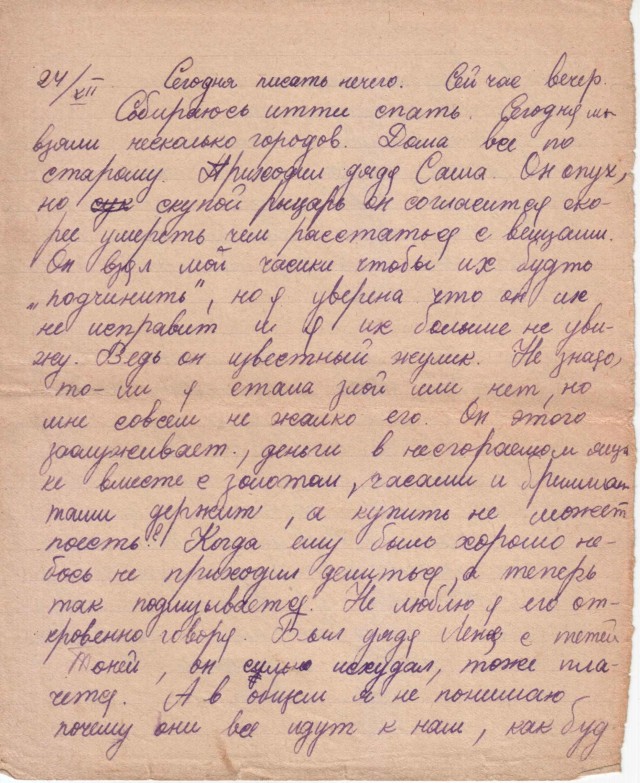 24/XII Сегодня писать нечего. Сейчас вечер.
Собираюсь итти спать. Сегодня мы
взяли несколько городов. Дома все по
старому. Приходил дядя Саша. Он опух,
но скупой рыцарь он согласится ско-
рее умереть чем расстаться с вещами.
Он взял мой часики чтобы их будто
„подчинить", но я уверена что он их
не исправит и я их больше не уви-
жу. Ведь он известный жулик. Не знаю,
то-ли я стала злой или нет, но
мне совсем не жалко его. Он этого
заслуживает, деньги в несгораемом ящи-
ке вместе с золотом, часами и бриллиан-
тами держит, а купить не может
поесть! Когда ему было хорошо не-
бось не приходил делиться, а теперь
так подлизывается. Не люблю я его от-
кровенно говоря. Был дядя Леня с тетей
Тоней, он сильно исхудал, тоже пла-
чется. А в общем я не понимаю
почему они все идут к нам, как буд-